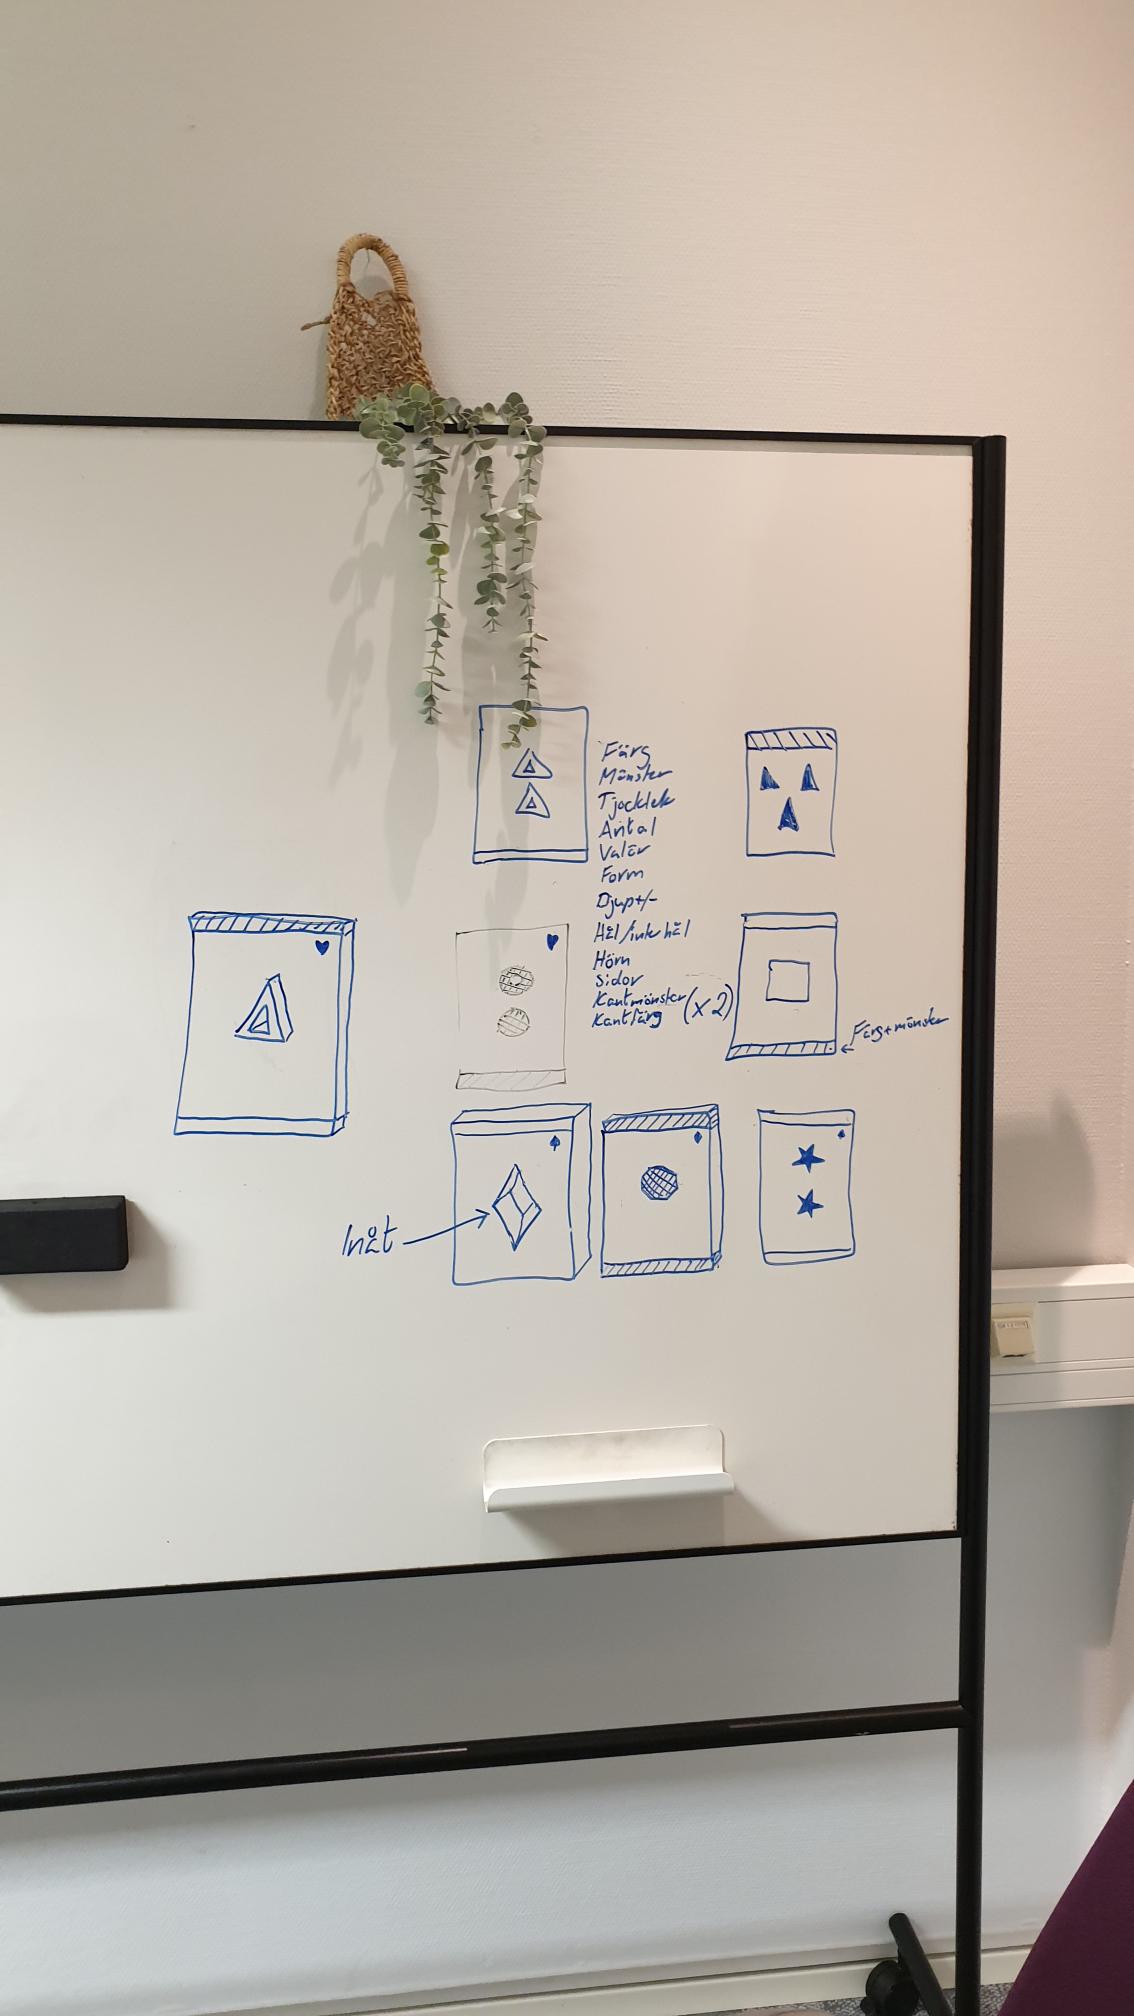 Färg
Mönster
Tjocklek
Antal
Valör
Form
Djup+/-
Hål/inte hål
Hörn
Sidor
Kantmönster (x2)
Kantfärg
Färg+mönster
Inåt